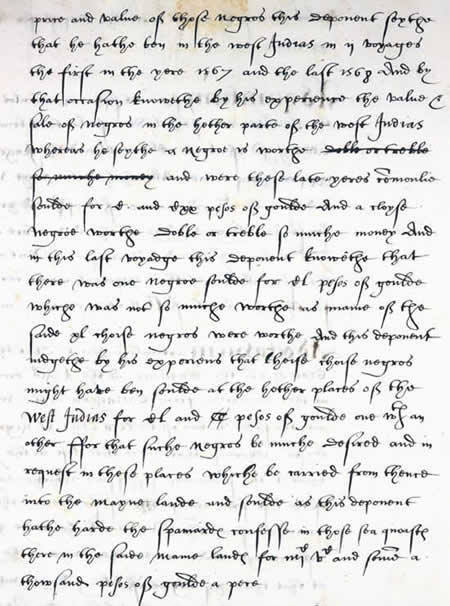 price and value of those negros this deponent seythe
that he hathe ben in the west Indias in ii voyages
the first in the yere 1567 and the last 1568 And by
that occasion knowethe by his experience the value &
sale of negros in the hether parte of the west Indias
whereas he seythe a negro is worthe doble or treble
so muche money and were these late yeres comonlie
soulde for C. and Clxx pesos of goulde And a choyse
negroe worthe doble or treble so muche money And
in this last voyadge this deponent knowethe that
there was one negroe soulde for Cl pesos of goulde
whiche was not so muche worthe as maine of the
saide xl choise negros were worthe And this deponent
iudgethe by his experiens that those choise negros
might have ben soulde at the hether places of the
West Indias for Cl and pesos of goulde one wth an
other ffor that suche negros be muche desired and in
request in these places whiche be carried from thence
into the mayne lande and soulde as this deponent
hathe harde the spaniardes confesse in those sea quoastes
there in the saide maine landes for iiiic vc and some a
thowsand pesos of goulde a pece